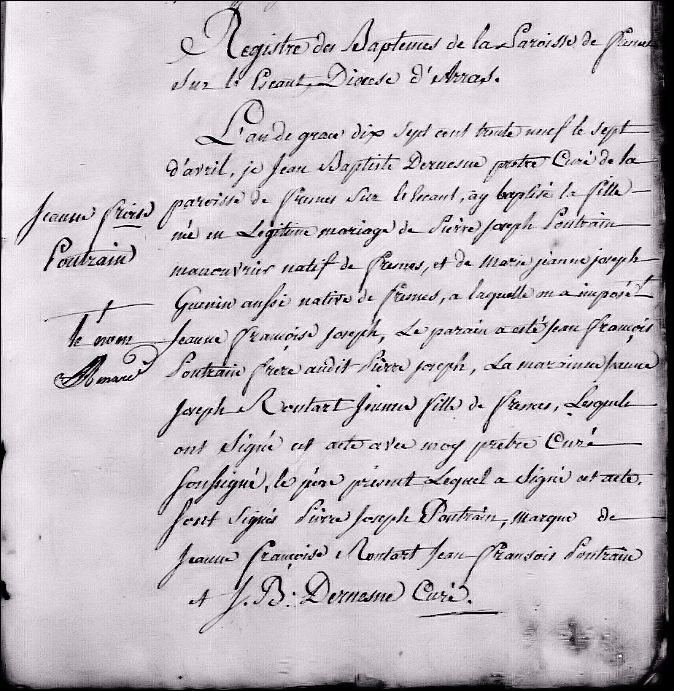 Registre des Baptemes de la Paroisse de Fresnes
sur l'Escaut, Diocese d'Arras.
L'an de grace dix sept cent trente neuf le sept
d'avril, je Jean Baptiste Dernesne pretre Curé de la
paroisse de Fresnes sur lescaut, ay baptisé la fille
née en Legitime mariage de Pierre Joseph Poutrain
manouvrier natif de Fresnes, et de marie jeanne joseph
Guenin aussi native de Fresnes, a laquelle on a imposé
Jeanne frcise
Poutrain
+
le nom
Jeanne Françoise Joseph, Le parain a esté Jean François
Poutrain frere audit Pierre joseph, La marainne Jeanne
Joseph Rontart Jeunne fille de fresnes, Lesquels
ont Signé cet acte avec moy pretre Curé
soussigné, le pére présent Lequel a Signé cet acte,
sont signés Pierre Joseph Poutrain, marque de
Jeanne Françoise Rontart Jean Fransois Poutrain
et J. B. Dernesne Curé.